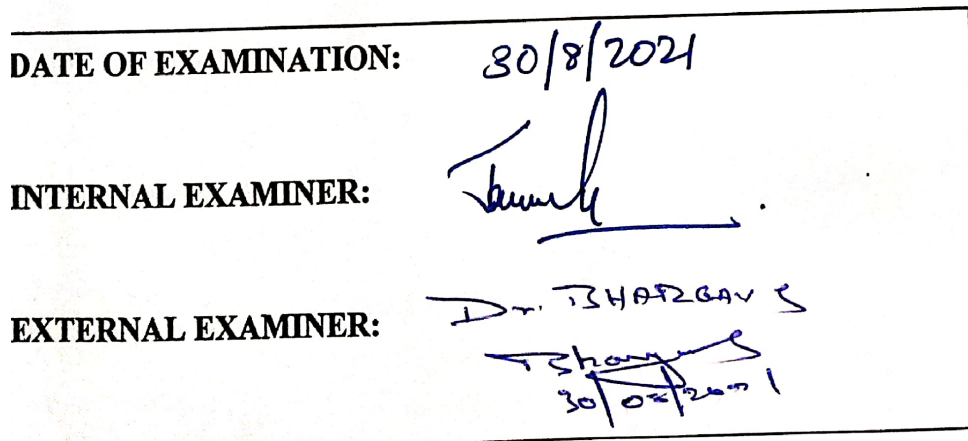 DATE OF EXAMINATION: 30/8/2021
INTERNAL EXAMINER:
EXTERNAL EXAMINER: Dr. BHARGAV S
30/08/2021